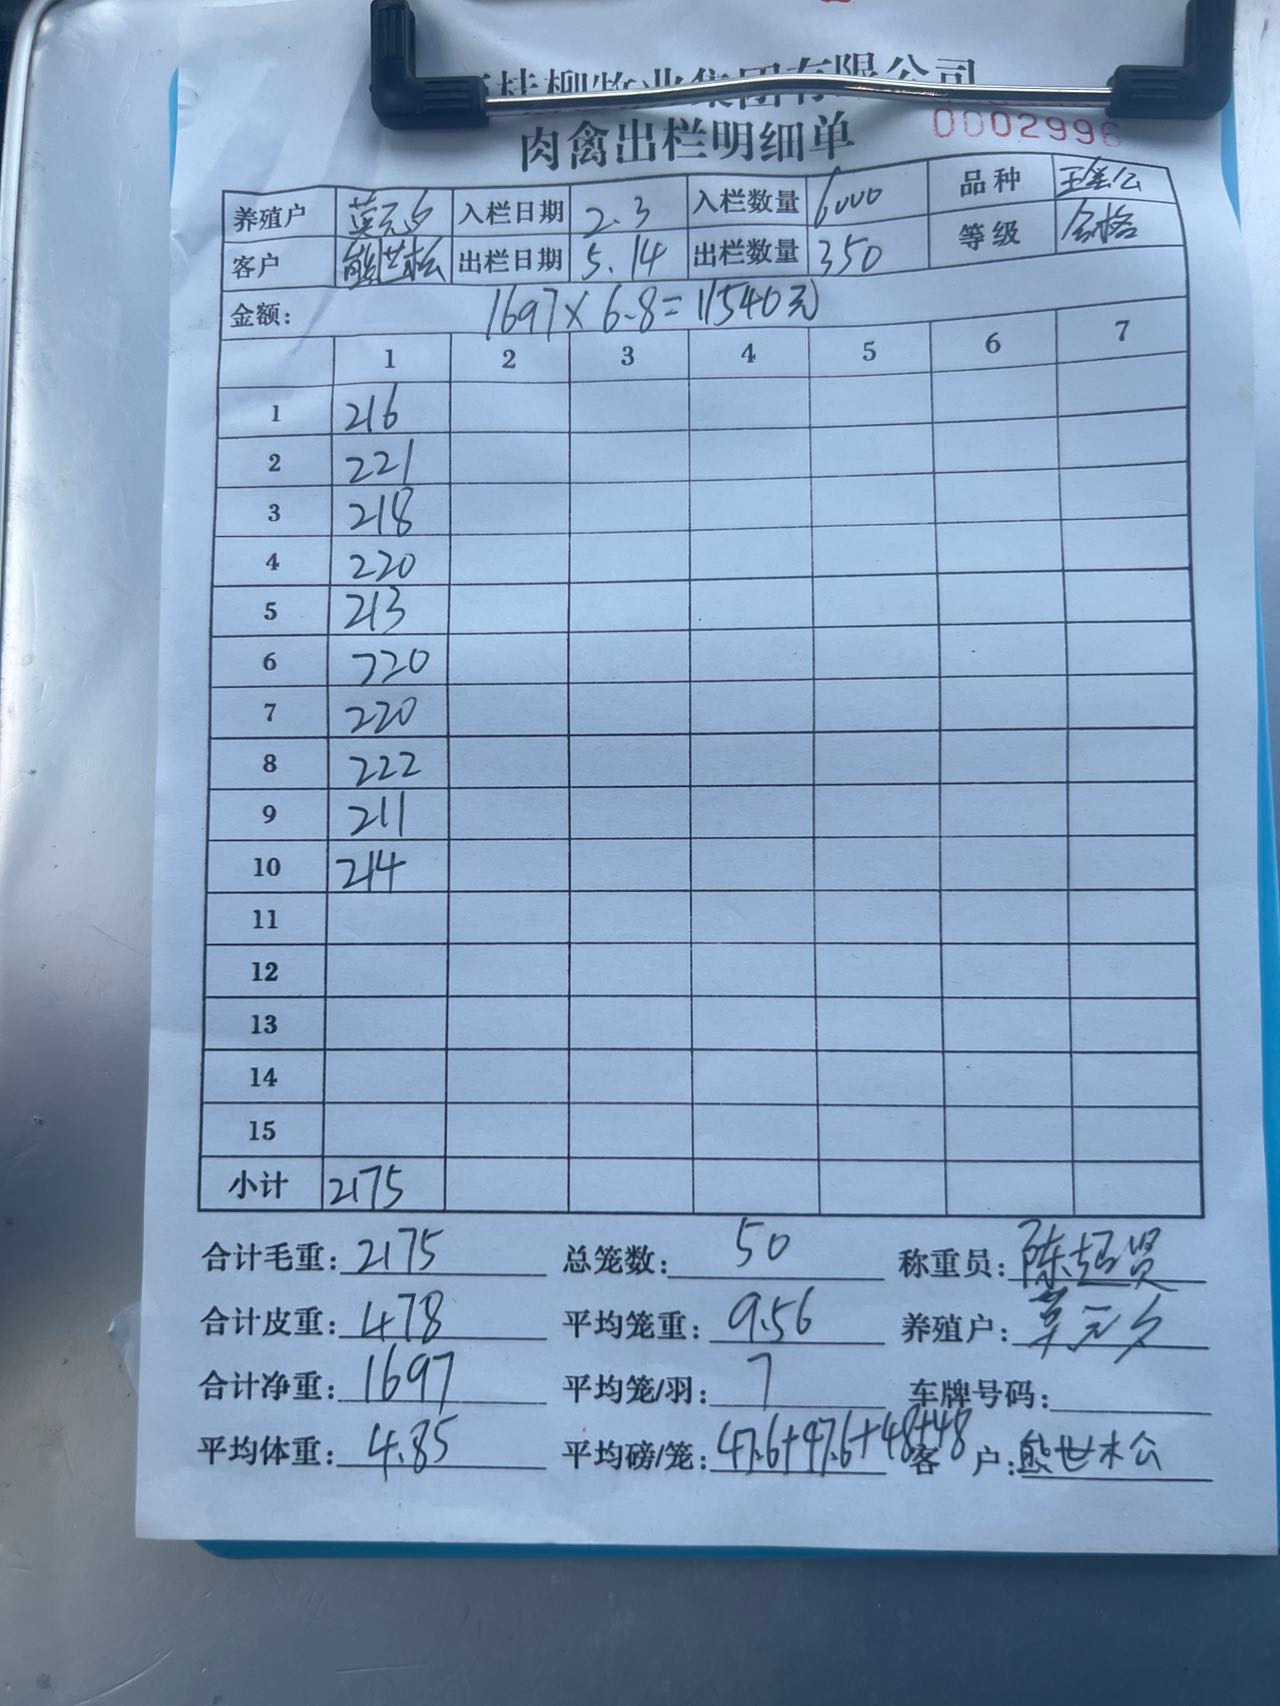 桂柳牧业集团有限公司
肉禽出栏明细单 0002996
养殖户 入栏日期 2.3 入栏数量 6000 品种
客户 熊世松 出栏日期 5.14 出栏数量 350 等级 合格
金额: 1697×6.8=11540元
1 2 3 4 5 6 7
1 216
2 221
3 218
4 220
5 213
6 220
7 220
8 222
9 211
10 214
11
12
13
14
15
小计 2175
合计毛重: 2175 总笼数: 50 称重员: 陈 贤
合计皮重: 478 平均笼重: 9.56 养殖户:
合计净重: 1697 平均笼/羽: 7 车牌号码:
平均体重: 4.85 平均磅/笼: 47.6+47.6+48+48 客户: 熊世松